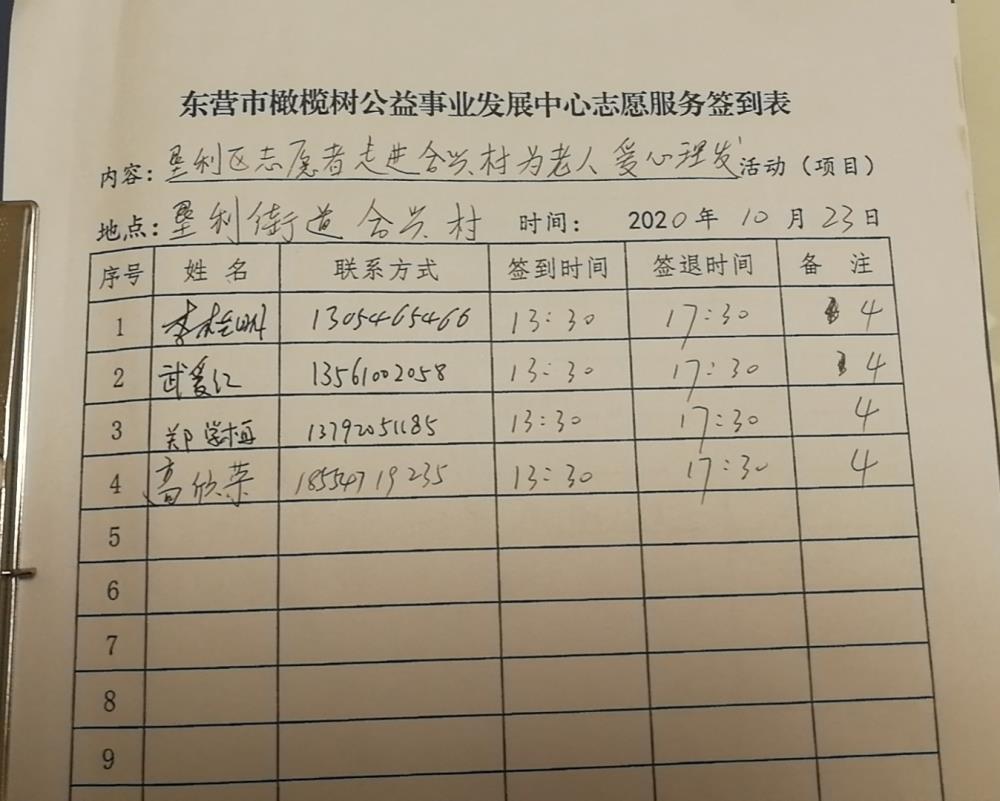 东营市橄榄树公益事业发展中心志愿服务签到表
内容：垦利区志愿者走进合兴村为老人爱心理发活动（项目）
地点：垦利街道合兴村 时间： 2020年10月23日
序号 姓名 联系方式 签到时间 签退时间 备注
1 13054654666 13:30 17:30 4
2 武爱红 13561002058 13:30 17:30 4
3 郑学梅 13792051185 13:30 17:30 4
4 高欣荣 18554719235 13:30 17:30 4
5
6
7
8
9